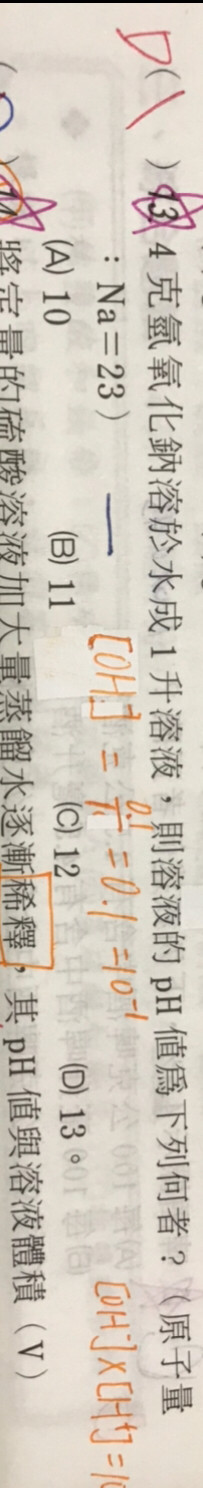 D
( ) 13 4 克氫氧化鈉溶於水成 1 升溶液，則溶液的 pH 值為下列何者？（原子量
：Na＝23）
[OH⁻] = 0.1/1 = 0.1 = 10⁻¹
[OH⁻]×[H⁺] = 10
(A) 10 (B) 11 (C) 12 (D) 13。
( ) 14 將定量的硫酸溶液加大量蒸餾水逐漸稀釋，其 pH 值與溶液體積（V）